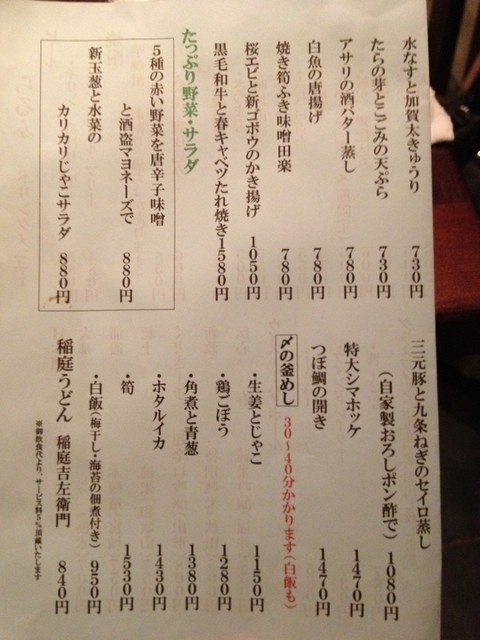 水なすと加賀太きゅうり 730円
たらの芽とこごみの天ぷら 730円
アサリの酒バター蒸し 780円
白魚の唐揚げ 780円
焼き筍ふき味噌田楽 780円
桜エビと新ゴボウのかき揚げ 1050円
黒毛和牛と春キャベツたれ焼き 1580円
たっぷり野菜・サラダ
5種の赤い野菜を唐辛子味噌
と酒盗マヨネーズで 880円
新玉葱と水菜の
カリカリじゃこサラダ 880円
三元豚と九条ねぎのセイロ蒸し
(自家製おろしポン酢で) 1080円
特大シマホッケ 1470円
つぼ鯛の開き 1470円
〆の釜めし 30〜40分かかります(白飯も)
・生姜としゃこ 1150円
・鶏ごぼう 1280円
・角煮と青葱 1380円
・ホタルイカ 1430円
・筍 1530円
・白飯(梅干し・海苔の佃煮付き) 950円
稲庭うどん 稲庭吉左衛門 840円
※御飲食代より、サービス料5%頂戴いたします